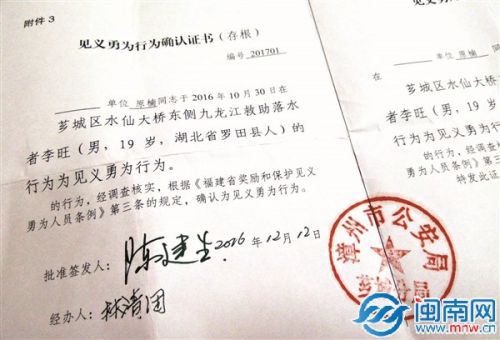 附件3
见义勇为行为确认证书（存根）
编号 201701
单位 原楠同志于2016年10月30日在
芗城区水仙大桥东侧九龙江救助落水
者李旺（男，19岁，湖北省罗田县人）的
行为为见义勇为行为。
的行为，经调查核实，根据《福建省奖励和保护见义
勇为人员条例》第三条的规定，确认为见义勇为行为。
批准签发人：陈建生 2016年12月12日
经办人：林清团
见义勇为行
单位 原楠
在
东
者李旺（男
行为为见义
的行为，经
勇为人员条
特发此证
漳州市公安局
芗城分局
闽南网
www.mnw.cn